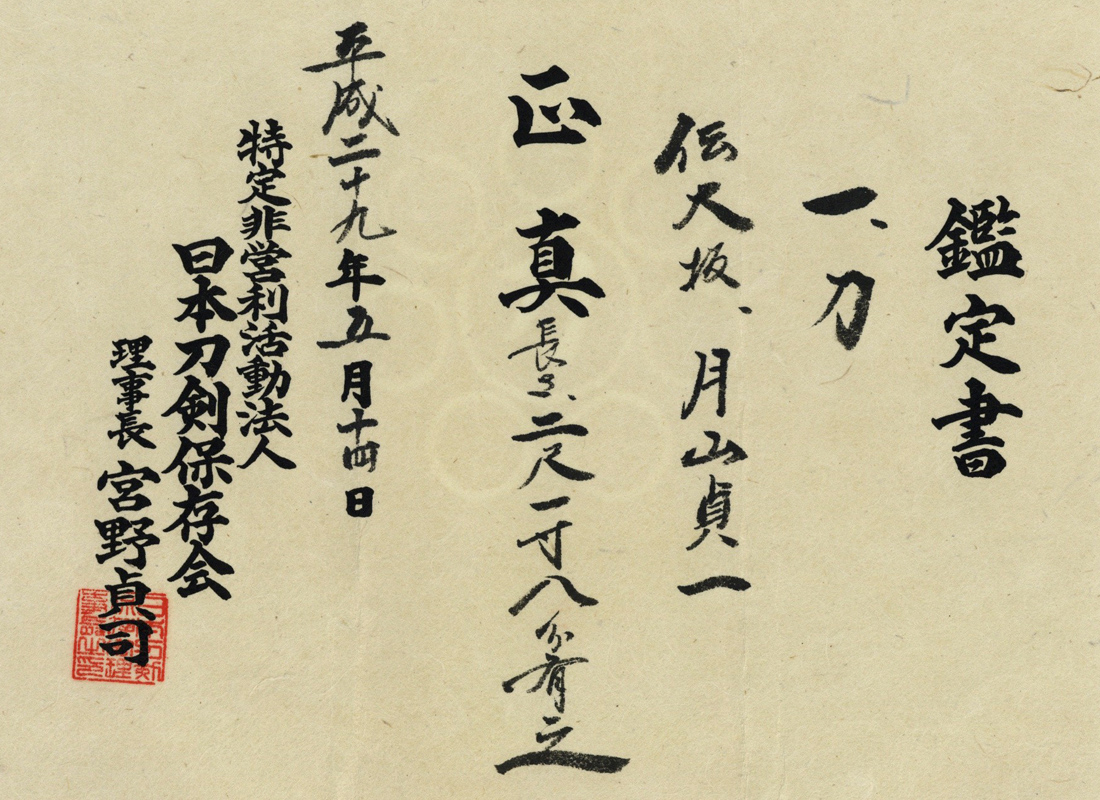 鑑定書
一、刀
伝大坂、月山貞一
正真
長さ、二尺一寸八分有之
平成二十九年五月十四日
特定非営利活動法人
日本刀剣保存会
理事長 宮野貞司